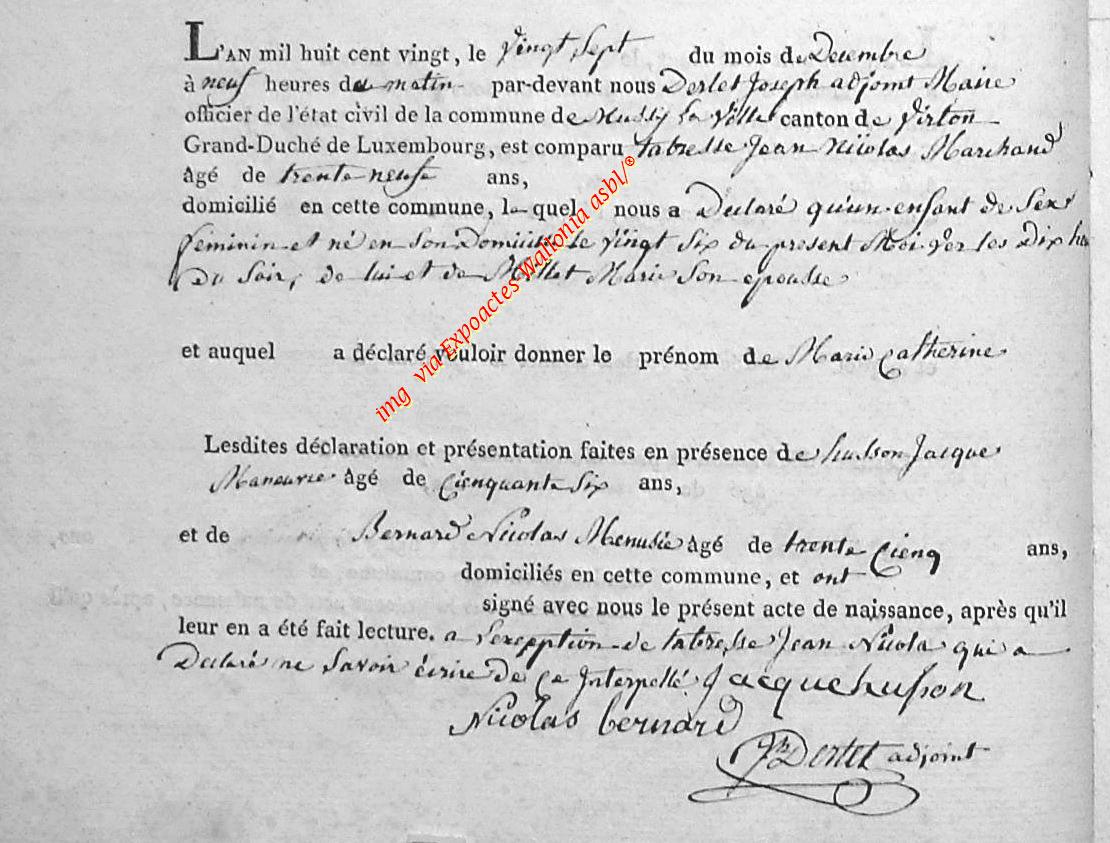 L'AN mil huit cent vingt, le vingt sept du mois de Decembre
à neuf heures du matin par-devant nous Derlet Joseph adjoint Maire
officier de l'état civil de la commune de Mussy La Ville canton de Virton
Grand-Duché de Luxembourg, est comparu tabresse Jean Nicolas Marchand
âgé de trente neufe ans,
domicilié en cette commune, le quel nous a Déclaré qu'un enfant de Sexe
feminin et né en son Domicile le vingt Six du present Moi ver les Dix heu
Du Soir, de lui et de Millet Marie Son epousse
et auquel a déclaré vouloir donner le prénom de Marie Catherine
Lesdites déclaration et présentation faites en présence de husson Jacque
Maneuvre âgé de Cienquante Six ans,
et de Bernard Nicolas Menusie âgé de trente Cienq ans,
domiciliés en cette commune, et ont
signé avec nous le présent acte de naissance, après qu'il
leur en a été fait lecture. a l'exepption de tabresse Jean Nicola qui a
Declaré ne Savoir écrire de ce Interpellé Jacque husson
Nicolas bernard
Derlet adjoint
img via Expoactes Wallonia asbl/®